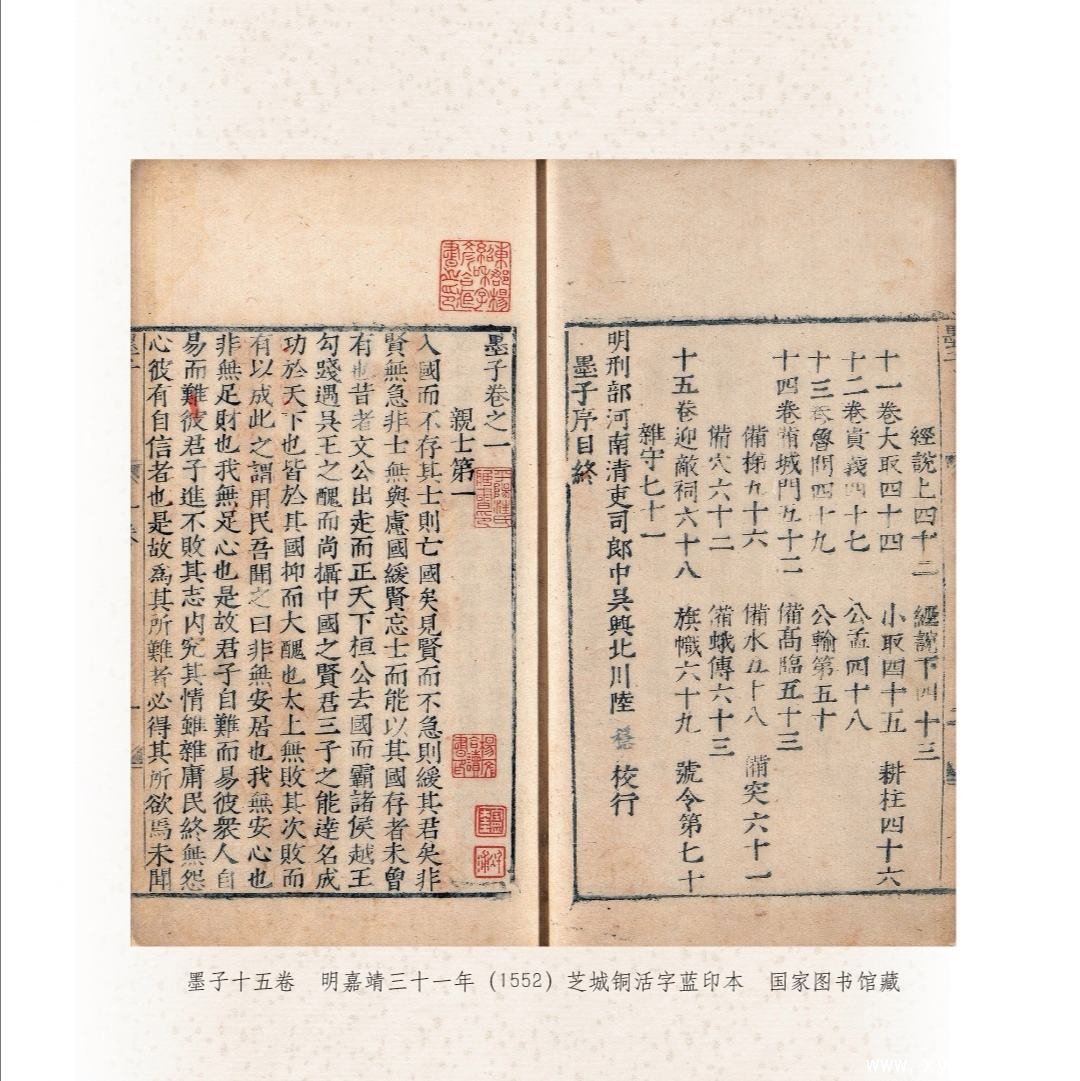 經說上四十二 經說下四十三
十一卷大取四十四 小取四十五 耕柱四十六
十二卷貴義四十七 公孟四十八
十三卷魯問四十九 公輸第五十
十四卷備城門五十二 備高臨五十三
備梯五十六 備水五十八 備突六十一
備穴六十二 備蛾傳六十三
十五卷迎敵祠六十八 旗幟六十九 號令第七十
雜守七十一
明刑部河南清吏司郎中吳興北川陸 穩 校行
墨子序目終
墨子卷之一
親士第一
入國而不存其士則亡國矣見賢而不急則緩其君矣非
賢無急非士無與慮國緩賢忘士而能以其國存者未曾
有也昔者文公出走而正天下桓公去國而霸諸侯越王
勾踐遇吳王之醜而尚攝中國之賢君三子之能達名成
功於天下也皆於其國抑而大醜也太上無敗其次敗而
有以成此之謂用民吾聞之曰非無安居也我無安心也
非無足財也我無足心也是故君子自難而易彼衆人自
易而難彼君子進不敗其志内究其情雖雜庸民終無怨
心彼有自信者也是故爲其所難者必得其所欲焉未聞
墨子十五卷 明嘉靖三十一年（1552）芝城铜活字蓝印本 国家图书馆藏